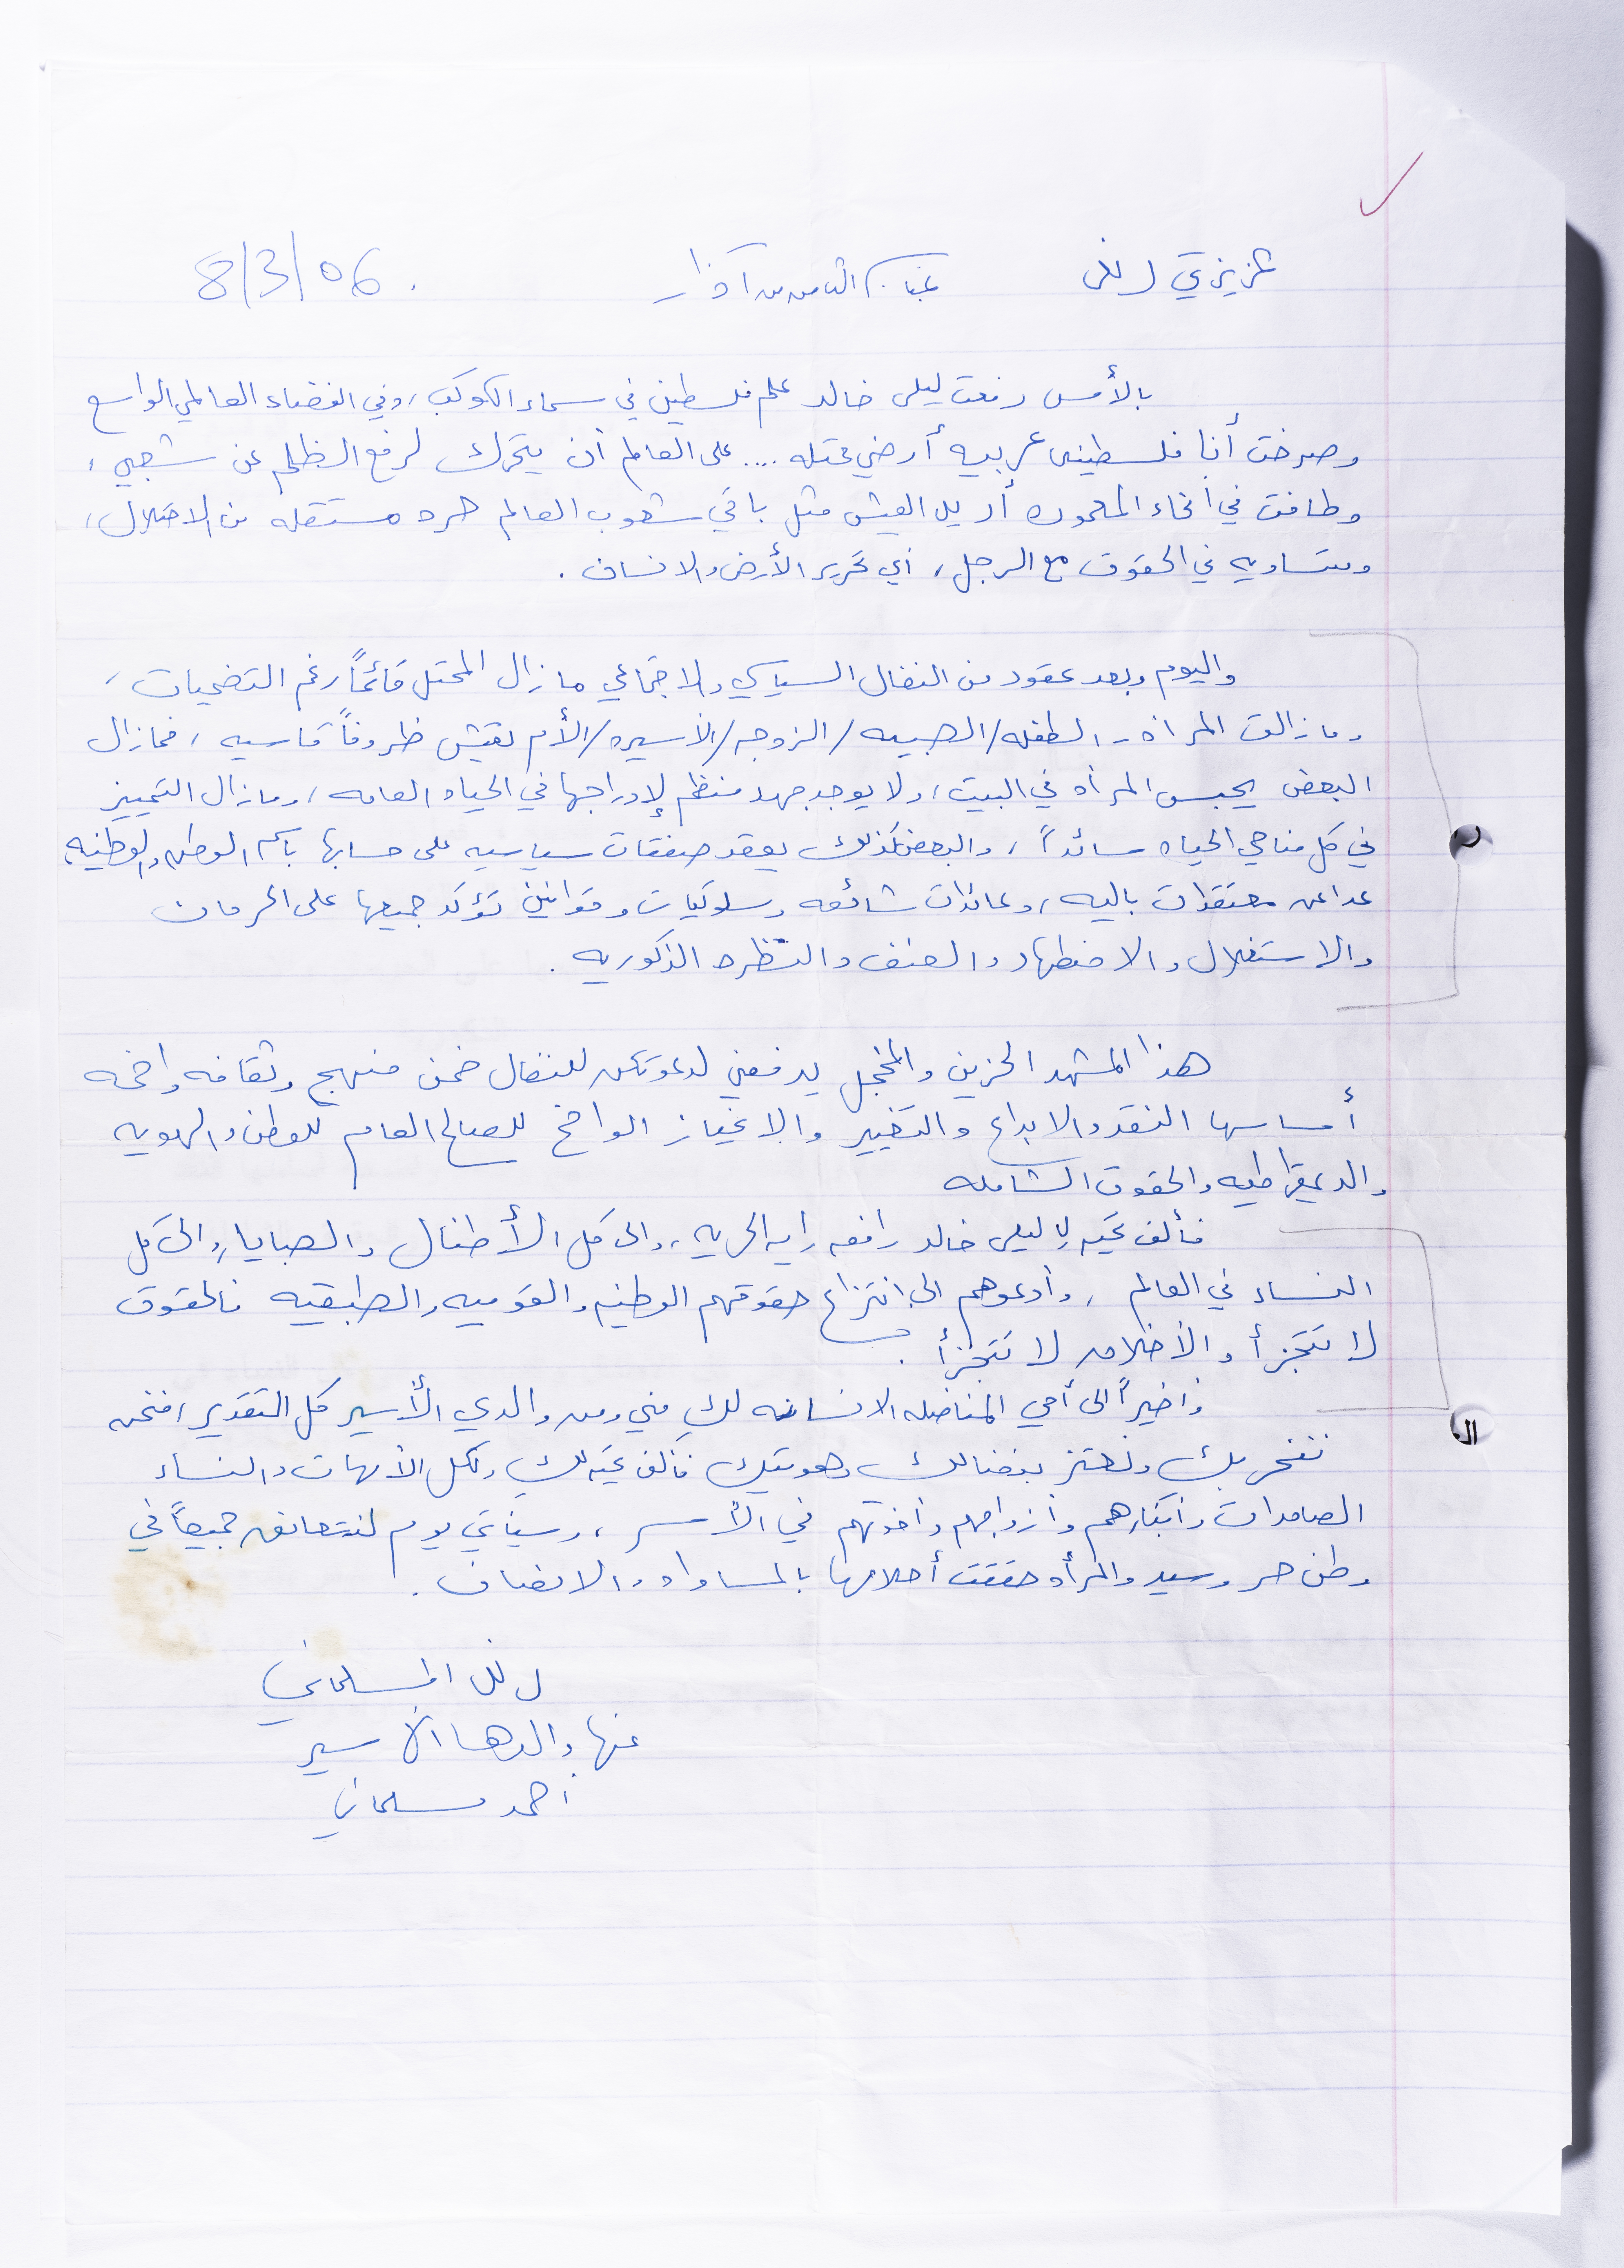 عزيزتي بمناسبة الثامن من آذار 8/3/06.
بالأمس رفعت ليلى خالد علم فلسطين في سماء الكوكب، وفي الفضاء العالمي الواسع
وصرخت أنا فلسطينيه عربيه أرضي محتله .... على العالم أن يتحرك لرفع الظلم عن شعبي،
وطافت في أنحاء المعموره أريد العيش مثل باقي شعوب العالم حره مستقله من الاحتلال،
ومتساويه في الحقوق مع الرجل، أي تحرير الأرض والانسان.
واليوم وبعد عقود من النضال السياسي والاجتماعي ما زال المحتل قائماً رغم التضحيات،
وما زالت المرأه - الطفله/الصبيه/الزوجه/الأسيره/الأم تعيش ظروفاً قاسيه، فما زال
البعض يحبس المرأه في البيت، ولا يوجد جهد منظم لإدراجها في الحياه العامه، وما زال التمييز
في كل مناحي الحياه سائداً، والبعض كذلك يعقد صفقات سياسيه على حسابها باسم الوطن والوطنيه
عدا عن معتقدات باليه، وعادات شائعه وسلوكيات وقوانين تؤكد جميعها على الحرمان
والاستغلال والاضطهاد والعنف والنظره الذكوريه.
هذا المشهد الحزين والمخجل يدفعني لدعوتكن للنضال ضمن منهج وثقافه واضحه
أساسها النقد والابداع والتغيير والانحياز الواضح للصالح العام للوطن والهويه
والديمقراطيه والحقوق الشامله
فألف تحيه لـ ليلى خالد رافعه رايه الحريه، والى كل الأطفال والصبايا، والى كل
النساء في العالم، وأدعوهم الى انتزاع حقوقهم الوطنيه والقوميه والطبقيه فالحقوق
لا تتجزأ والأخلاق لا تتجزأ.
وأخيراً الى أمي المناضله الانسانه لكِ مني ومن والدي الأسير كل التقدير، فنحن
نفتخر بك ونعتز بنضالك وهويتك فألف تحيه لك ولكل الأمهات والنساء
الصامدات وأبنائهم وأزواجهم وأخوتهم في الأسر، وسيأتي يوم لنتعانق جميعاً في
وطن حر وسيد والمرأه حققت أحلامها بالمساواه والانصاف.
المسلماني
عنها والدها الأسير
أحمد مسلماني